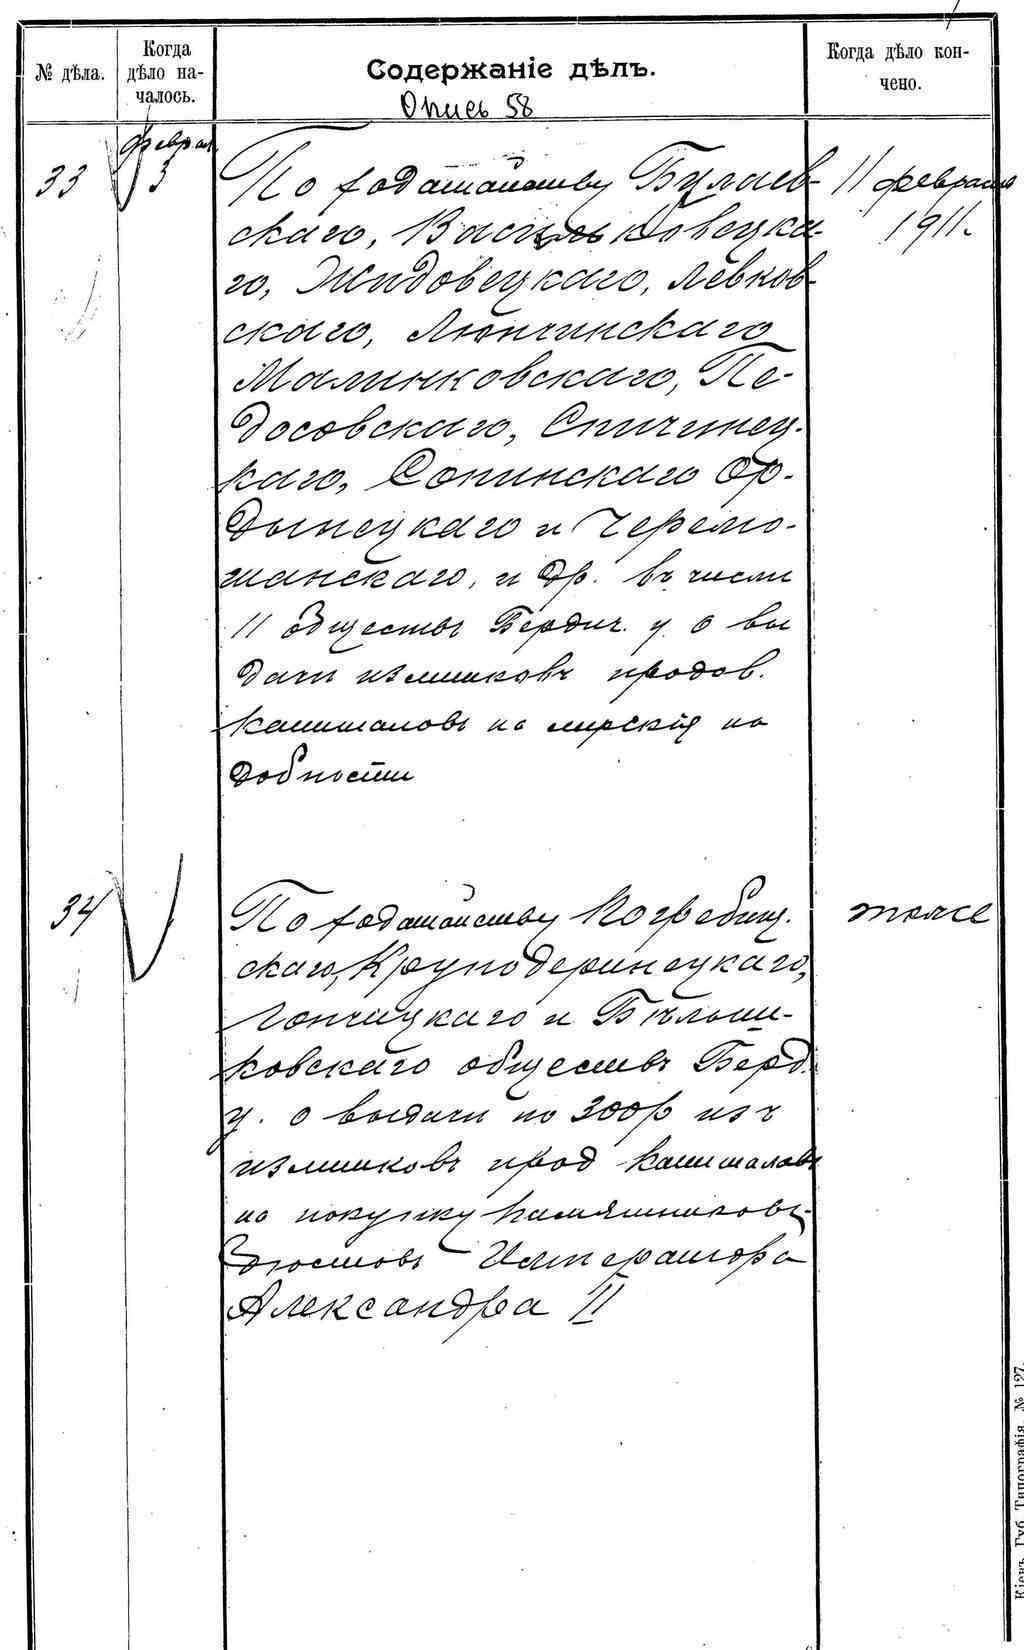 № дѣла.
Когда
дѣло на-
чалось.
Содержаніе дѣлъ.
Опись 58
Когда дѣло кон-
чено.
феврал.
33
3
По ходатайству Булаев-
скаго, Васильковецка-
го, Жидовецкаго, Левков-
скаго, Люпчинскаго
Малинковскаго, Пе-
досовскаго, Спичинец-
каго, Сопинскаго Ор-
дынецкаго и Черемо-
шанскаго, и др. въ числѣ
11 обществъ Бердич. у. о вы
дачи излишковъ продов.
капиталовъ на мірскія на
добности
11 февраля
1911.
34
По ходатайству Погребищ.
скаго, Круподеринецкаго,
Гопчицкаго и Бѣлаши-
ковскаго обществъ Берд.
у. о выдачи по 300 р изъ
излишковъ прод капиталовъ
на покупку памятниковъ-
бюстовъ Императора
Александра II
тоже
Кіевъ. Губ. Типографія. № 127.